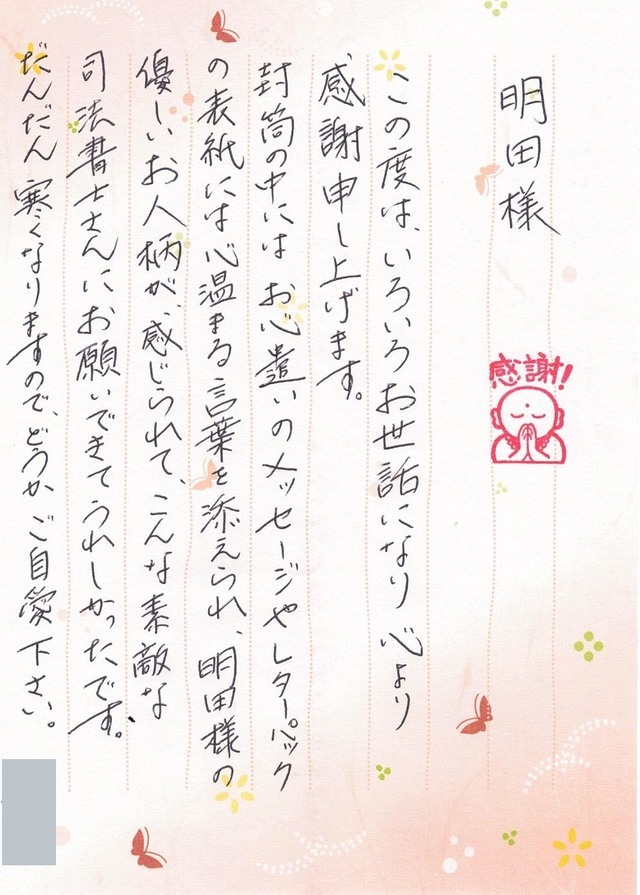 明田様
感謝!
この度は、いろいろお世話になり心より
感謝申し上げます。
封筒の中には お心遣いのメッセージやレターパック
の表紙には心温まる言葉を添えられ、明田様の
優しいお人柄が、感じられて、こんな素敵な
司法書士さんにお願いできてうれしかったです。
だんだん寒くなりますので、どうかご自愛下さい。